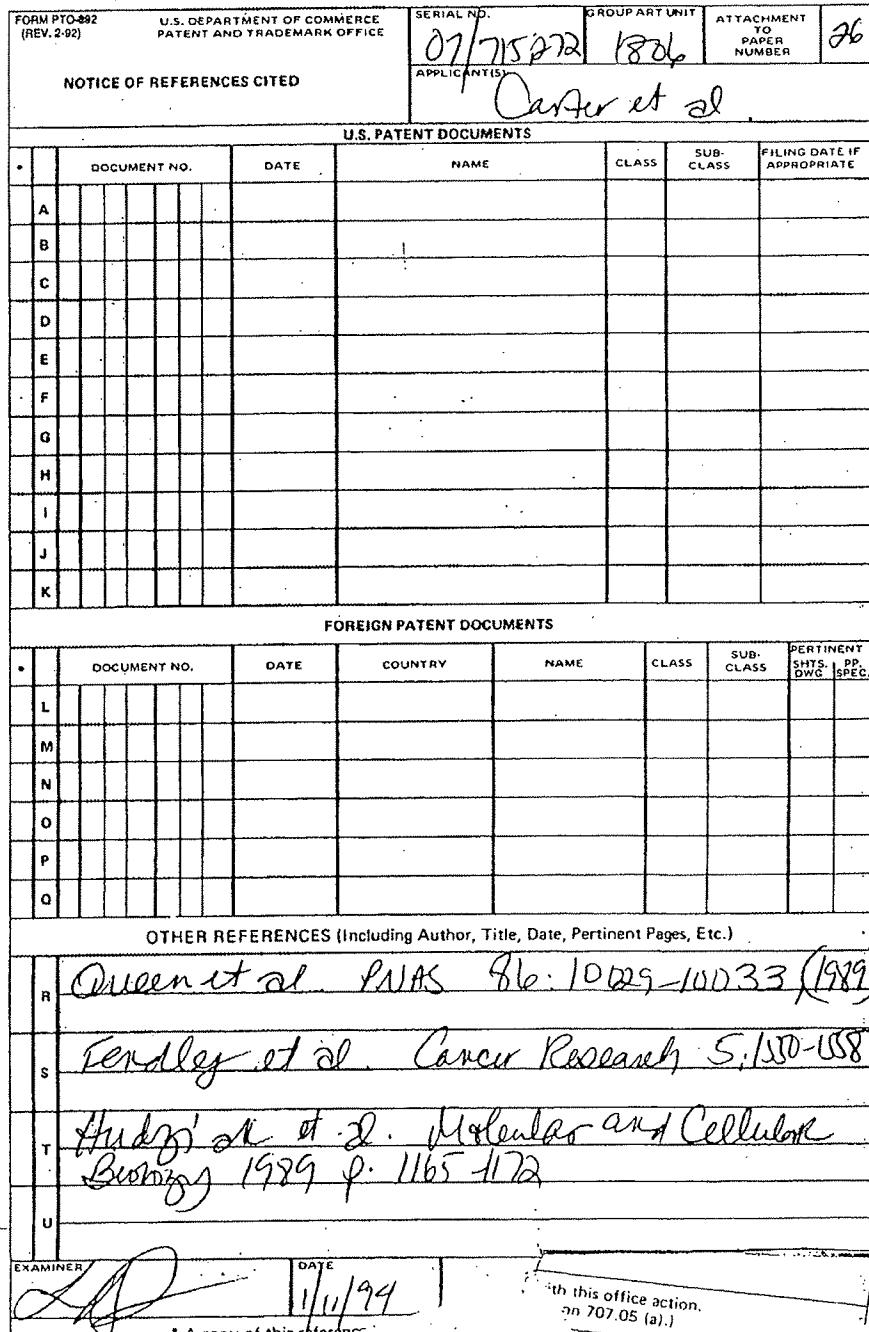 FORM PTO-892 U.S. DEPARTMENT OF COMMERCE
(REV. 2-92) PATENT AND TRADEMARK OFFICE
NOTICE OF REFERENCES CITED
SERIAL NO.
07/715272
GROUP ART UNIT
1806
ATTACHMENT
TO
PAPER
NUMBER
26
APPLICANT(S)
Carter et al
U.S. PATENT DOCUMENTS
* DOCUMENT NO. DATE NAME CLASS SUB-CLASS FILING DATE IF APPROPRIATE
A
B
C
D
E
F
G
H
I
J
K
FOREIGN PATENT DOCUMENTS
* DOCUMENT NO. DATE COUNTRY NAME CLASS SUB-CLASS PERTINENT SHTS. DWG PP. SPEC.
L
M
N
O
P
Q
OTHER REFERENCES (Including Author, Title, Date, Pertinent Pages, Etc.)
R Queen et al PNAS 86: 10029-10033 (1989)
S Fendley et al. Cancer Research 5:1550-1558
T Hudziak et al. Molecular and Cellular
Biology 1989 p. 1165-1172
U
EXAMINER DATE
1/11/94
th this office action.
on 707.05 (a).)
* A copy of this reference